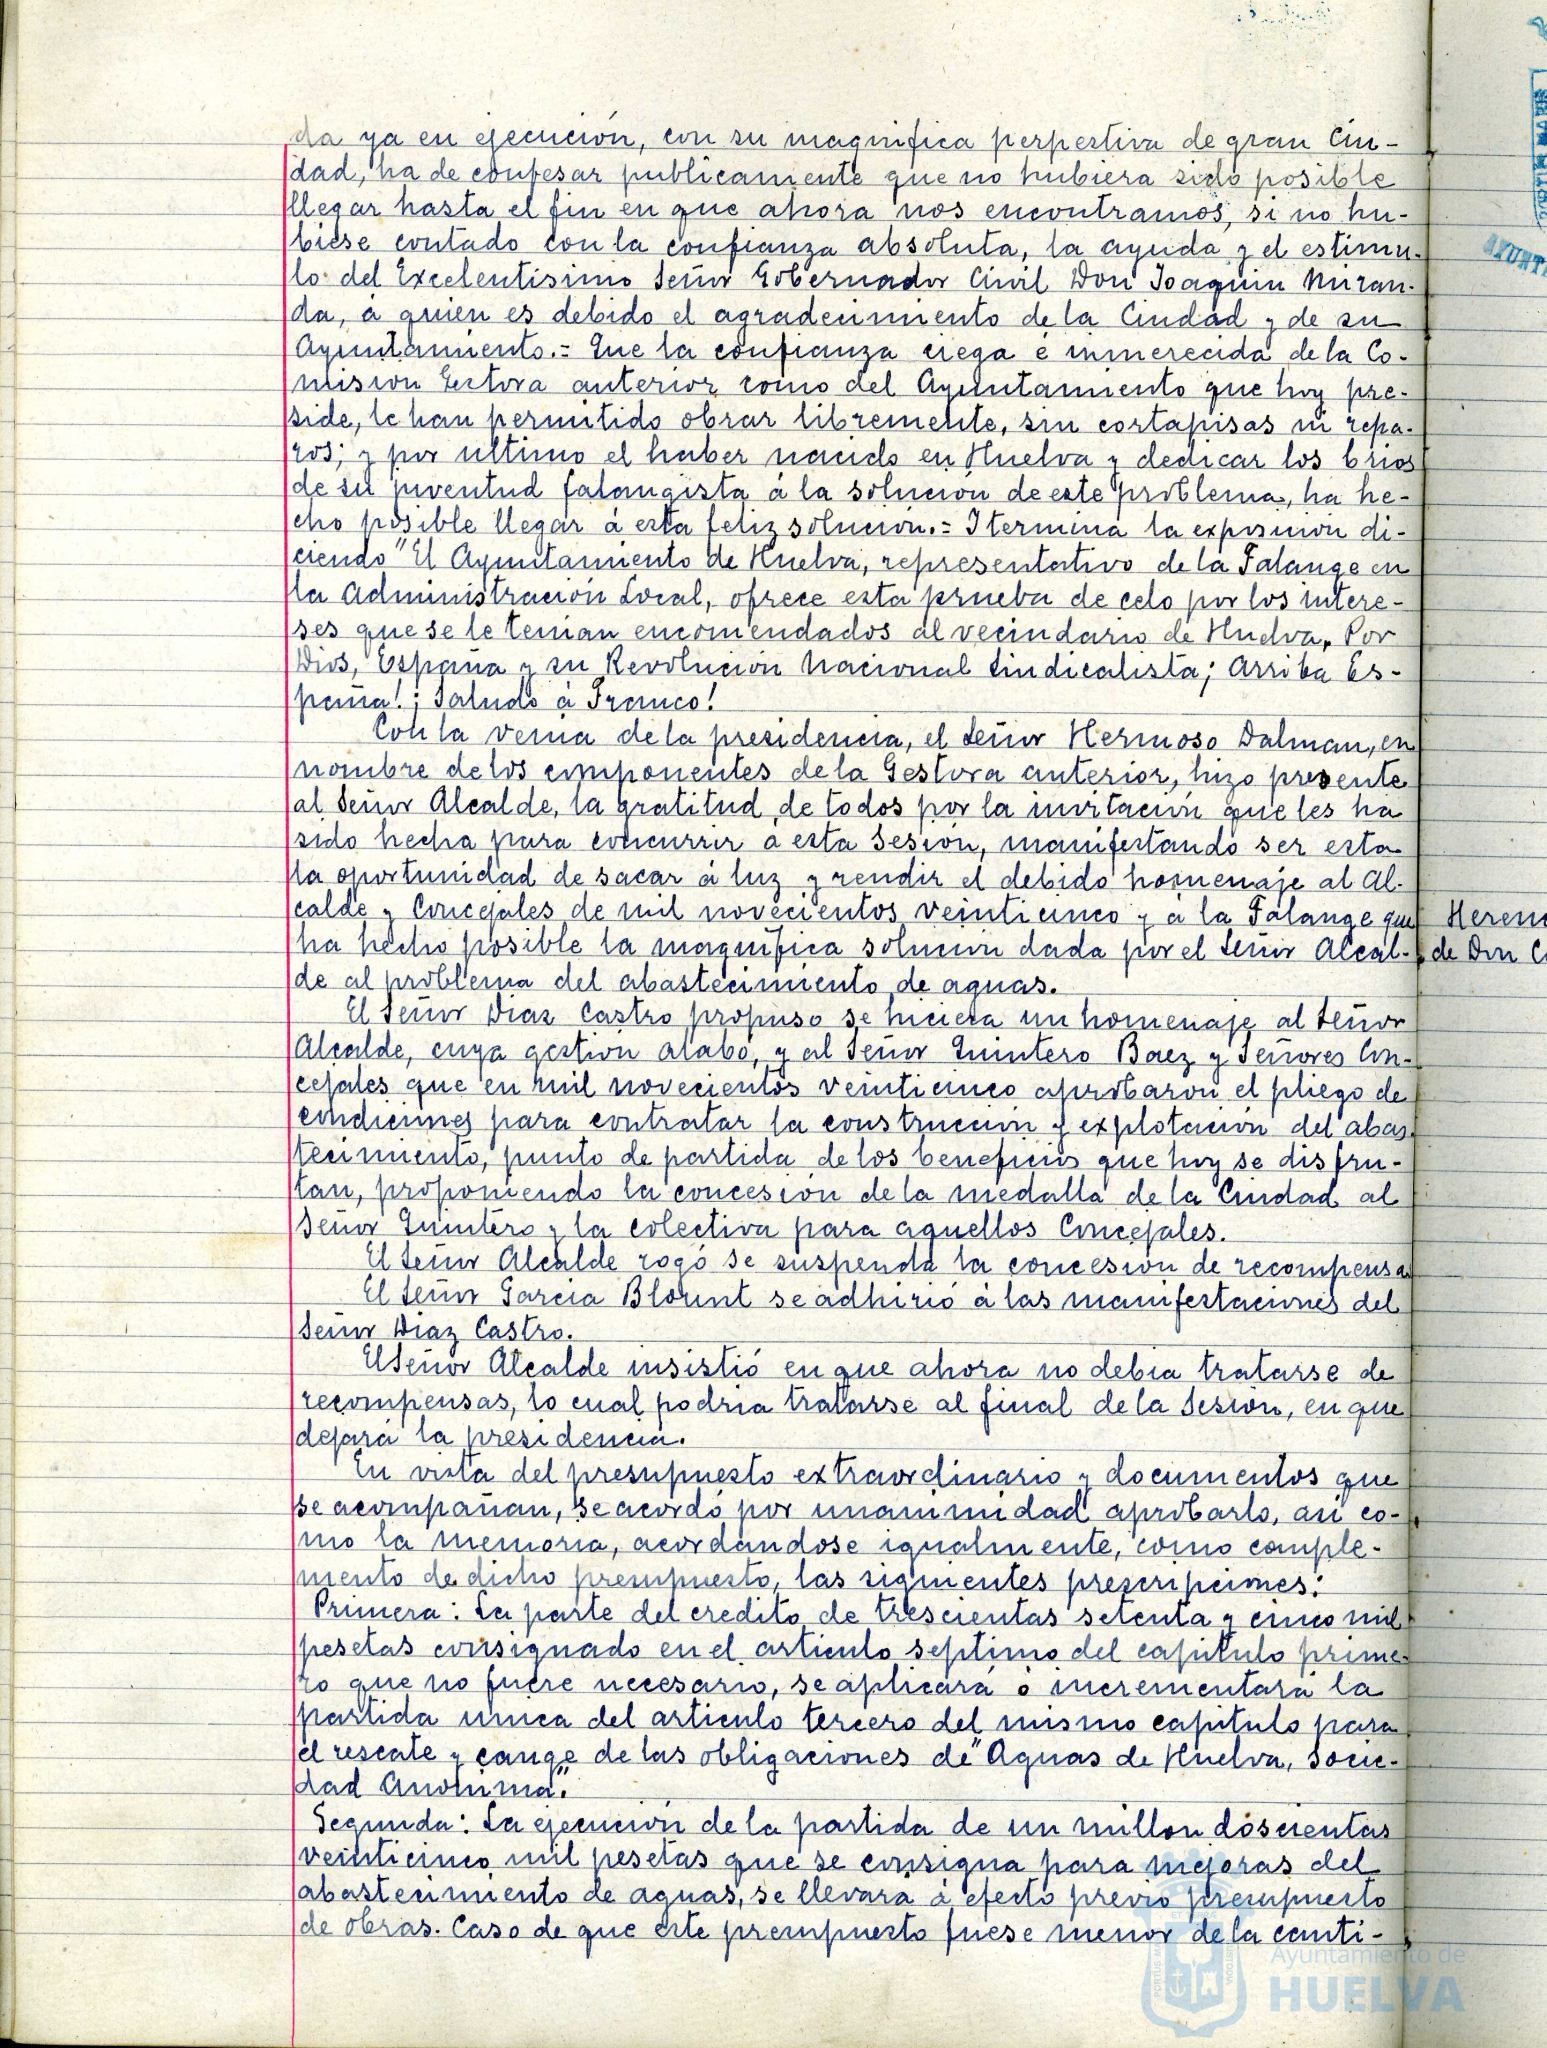 da ya en ejecución, con su magnifica perpestiva de gran Ciu-
dad, ha de confesar publicamente que no hubiera sido posible
llegar hasta el fin en que ahora nos encontramos, si no hu-
biese contado con la confianza absoluta, la ayuda y el estimu-
lo del Excelentisimo Señor Gobernador Civil Don Joaquin Miran-
da, á quien es debido el agradecimiento de la Ciudad y de su
Ayuntamiento.= Que la confianza ciega é inmerecida de la Co-
mision Gestora anterior como del Ayuntamiento que hoy pre-
side, le han permitido obrar libremente, sin cortapisas ni repa-
ros; y por ultimo el haber nacido en Huelva y dedicar los brios
de su juventud falangista á la solución de este problema, ha he-
cho posible llegar á esta feliz solución.= I termina la exposición di-
ciendo "El Ayuntamiento de Huelva, representativo de la Falange en
la Administración Local, ofrece esta prueba de celo por los intere-
ses que se le tenian encomendados al vecindario de Huelva, Por
Dios, España y su Revolución Nacional Sindicalista; Arriba Es-
paña! ¡Saludo á Franco!
Con la venia de la presidencia, el Señor Hermoso Dalman, en
nombre de los componentes de la Gestora anterior, hizo presente
al Señor Alcalde, la gratitud de todos por la invitación que les ha
sido hecha para concurrir á esta Sesion, manifestando ser esta
la oportunidad de sacar á luz y rendir el debido homenaje al Al-
calde y Concejales de mil novecientos veinticinco y á la Falange que
ha hecho posible la magnifica solucion dada por el Señor Alcal-
de al problema del abastecimiento de aguas.
El Señor Diaz Castro propuso se hiciera un homenaje al Señor
Alcalde, cuya gestion alabó, y al Señor Quintero Baez y Señores Con-
cejales que en mil novecientos veinticinco aprobaron el pliego de
condiciones para contratar la construcción y explotación del abas-
tecimiento, punto de partida de los beneficios que hoy se disfru-
tan, proponiendo la concesion de la medalla de la Ciudad al
Señor Quintero y la colectiva para aquellos Concejales.
El Señor Alcalde rogó se suspenda la concesion de recompensa
El Señor Garcia Blount se adhirió á las manifestaciones del
Señor Diaz Castro.
El Señor Alcalde insistió en que ahora no debia tratarse de
recompensas, lo cual podria tratarse al final de la Sesion, en que
dejará la presidencia.
En vista del presupuesto extraordinario y documentos que
se acompañan, se acordó por unanimidad aprobarlo, asi co-
mo la memoria, acordándose igualmente, como comple-
mento de dicho presupuesto, las siguientes prescripciones:
Primera: La parte del credito de trescientas setenta y cinco mil
pesetas consignado en el articulo septimo del capitulo prime-
ro que no fuere necesario, se aplicará ó incrementará la
partida unica del articulo tercero del mismo capitulo para
el rescate y cange de las obligaciones de "Aguas de Huelva, Socie-
dad Anonima".
Segunda: La ejecución de la partida de un millon doscientas
veinticinco mil pesetas que se consigna para mejoras del
abastecimiento de aguas, se llevará á efecto previo presupuesto
de obras. Caso de que este presupuesto fuese menor de la canti-
Heren
de Don C
Ayuntamiento de
HUELVA